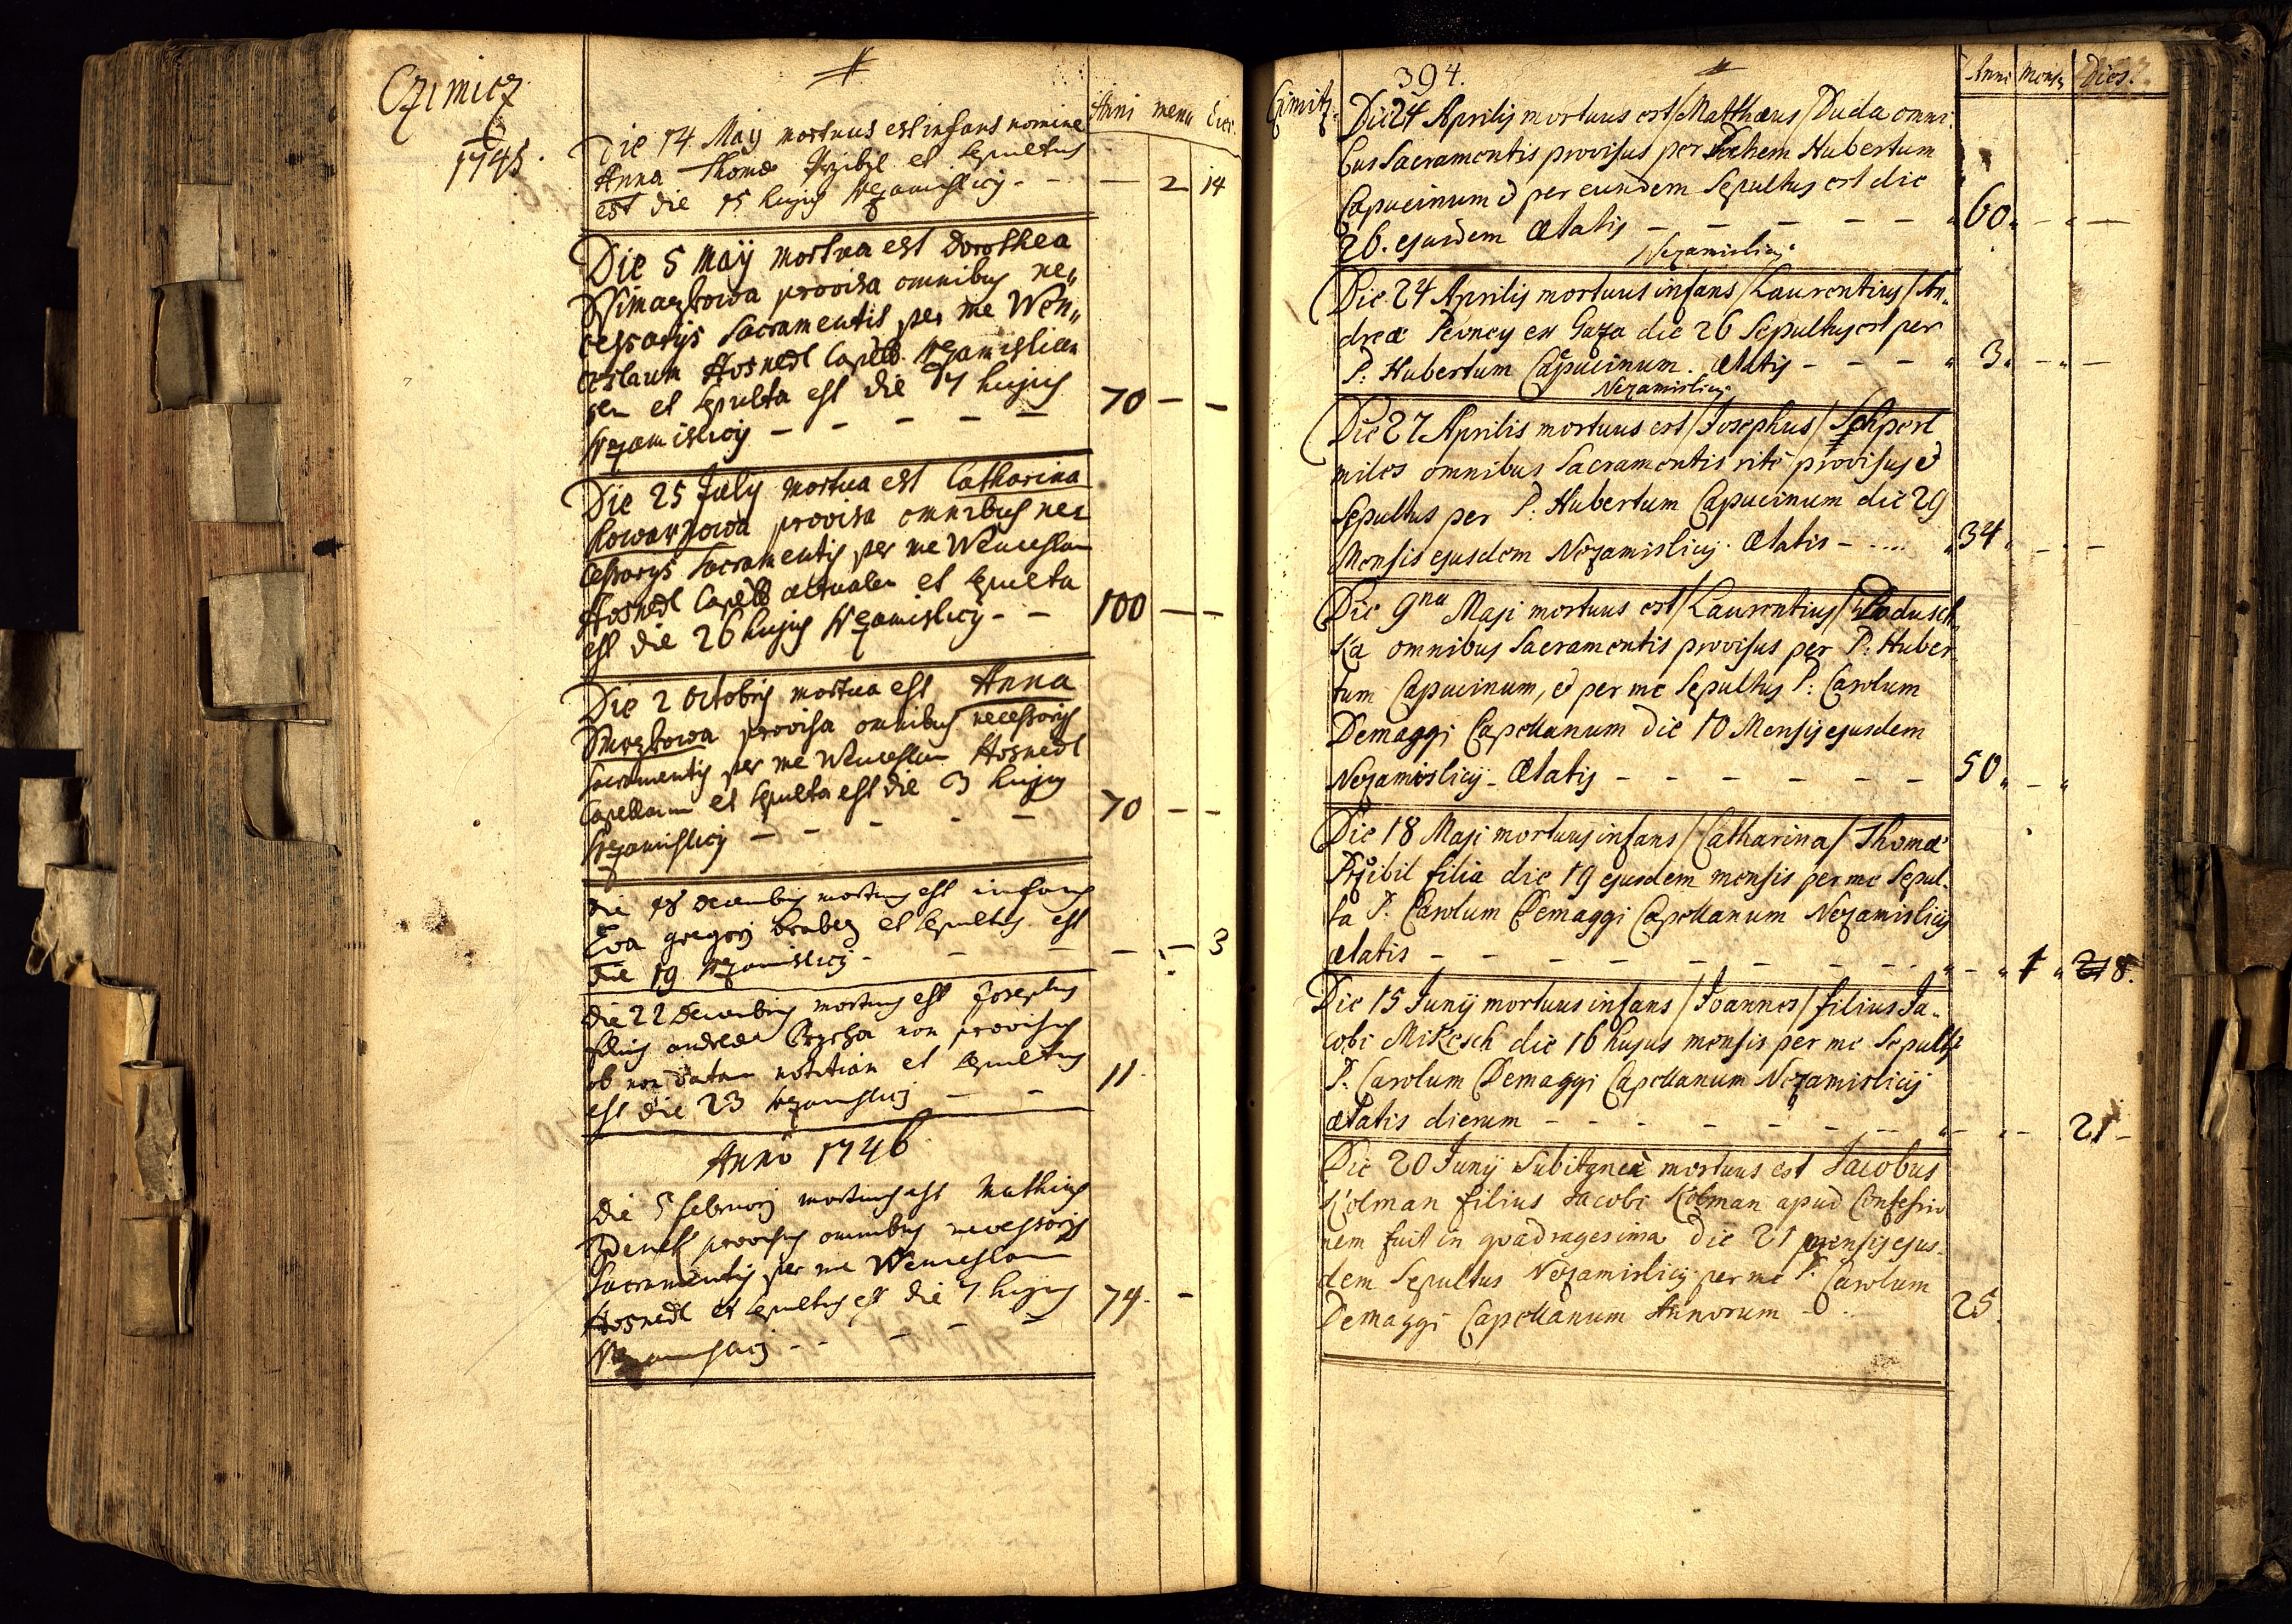 Czimicz
1745.
Anni mens dies.
Die 14 May mortuus est infans nomine
Anna Thomæ Przibil et sepultus
est die 15 hujus Nezamislicij - - — 2 14
Die 5 Maÿ mortua est Dorothea
provisa omnibus ne„
cessarijs Sacramentis per me Wen„
ceslaum Hosnedl Capell. Nezamislicen
sem et sepulta est die 7 hujus
Nezamislicij - - - - - 70 - -
Die 25 July mortua est Catharina
Kowarzowa provisa omnibus ne
cessarys Sacramentis per me Wenceslaum
Hosnedl Capell actualem et sepulta
est die 26 hujus Nezamislicij - - 100 - -
Die 2 Octobris mortua est Anna
Smrzkowa provisa omnibus necessarijs
Sacramentis per me Wenceslaum Hosnedl
Capellanum et sepulta est die 3 hujus
Nezamislicij - - - - - 70 - -
Die 18 Decembris mortuus est infans
Eva Gregorij et sepultus est
die 19 Nezamislicij - - - - - 3
Die 22 Decembris mortuus est Josephus
filius andreæ non provisus
ob non datam notitiam et sepultus
est die 23 Nezamislicij - - 11
Anno 1746
Die 5 Februarij mortuus est Mathias
provisus omnibus necessarijs
Sacramentis per me Wenceslaum
Hosnedl et sepultus est die 7 hujus
Nezamislicij - - - - 74. -
394.
Czimitz.
Anni Mens Dies.
Die 24 Aprilis mortuus est / Matthæus / Duda omni-
bus Sacramentis provisus per Patrem Hubertum
Capucinum & per eundem Sepultus est die
26. ejusdem Ætatis - - - - - 60. - -
Nezamislicij.
Die 24 Aprilis mortuus infans / Laurentius / An„
dreæ Pevney ex Gaza die 26 Sepultus est per
P: Hubertum Capucinum. Ætatis - - - 3. - -
Nezamislicij
Die 27 Aprilis mortuus est / Josephus / Schperl
miles omnibus Sacramentis ritè provisus &
Sepultus per P: Hubertum Capucinum die 29
Mensis ejusdem Nezamislicij. Ætatis - .... 34. - -
Die 9na Maji mortuus est / Laurentius / Padusch„
ka omnibus Sacramentis provisus per P: Huber„
tum Capucinum, & per me Sepultus P: Carolum
Demaggi Capellanum Die 10 Mensis ejusdem
Nezamislicij - Ætatis - - - - - - 50. -
Die 18 Maji mortuus infans / Catharina / Thomæ
Przibil filia die 19 ejusdem mensis per me Sepul-
ta P: Carolum Demaggi Capellanum Nezamislicij
Ætatis - - - - - - - - - - 1 8.
Die 15 Junij mortuus infans / Joannes / filius Ja-
cobi Mikesch die 16 hujus mensis per me Sepultus
P: Carolum Demaggi Capellanum Nezamislicij
Ætatis dierum - - - - - - - - - 21 -
Die 20 Junij mortuus est Jacobus
Kolman filius Jacobi Kolman apud Confessio
nem fuit in quadragesima die 21 mensis ejus-
dem Sepultus Nezamislicij per me P. Carolum
Demaggi Capellanum Annorum - - 25.